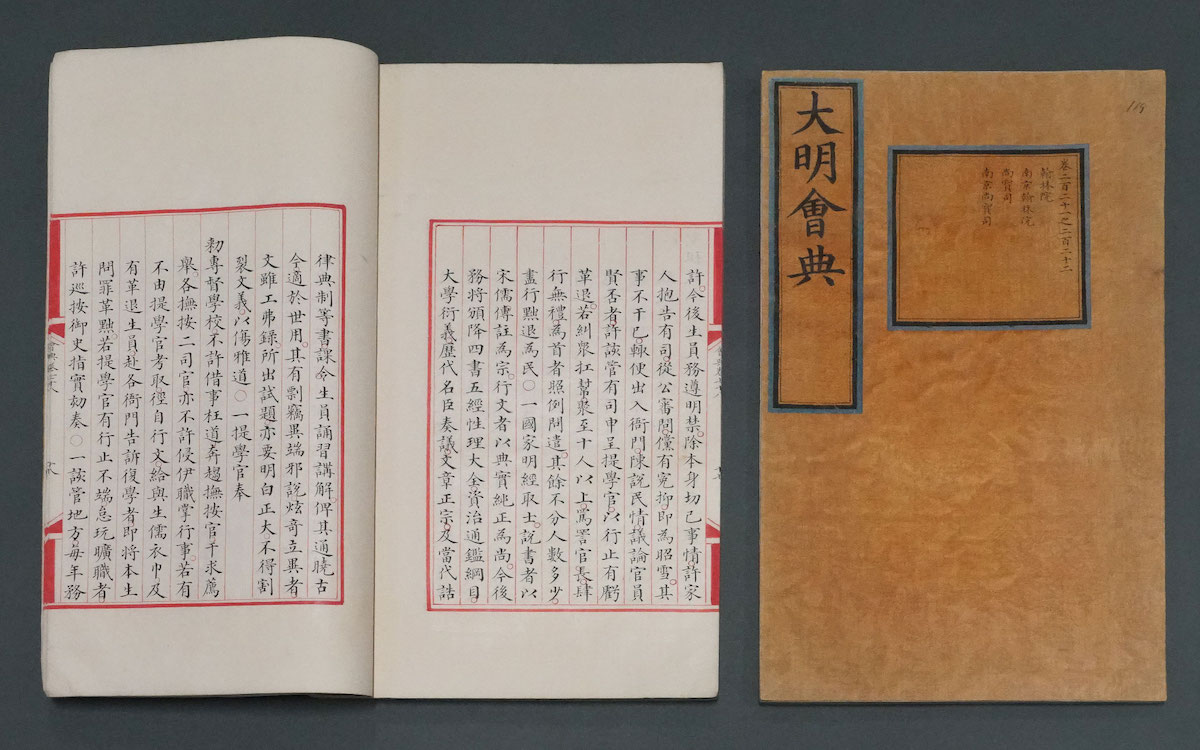 許。今後生員務遵明禁。除本身切己事情。許家
人抱告有司從公審問。儻有冤抑。即為昭雪。其
事不干己。輒便出入衙門。陳說民情。議論官員
賢否者。許該管有司申呈提學官。以行止有虧
革退。若糾眾扛幫聚至十人以上。罵詈官長。肆
行無禮。為首者照例問遣。其餘不分人數多少。
盡行黜退為民○一國家明經取士。說書者以
宋儒傳註為宗。行文者以典實純正為尚。今後
務將頒降四書五經性理大全資治通鑑綱目。
大學衍義歷代名臣奏議。文章正宗。及當代誥
律典制等書課令生員誦習講解。俾其通曉古
今適於世用。其有剽竊異端邪說炫奇立異者
文雖工弗錄所出試題亦要明白正大不得割
裂文義以傷雅道○一提學官奉
勑專督學校不許借事枉道奔趨撫按官干求薦
舉各撫按二司官亦不許侵伊職掌行事若有
不由提學官考取徑自行文給與生儒衣巾及
有革退生員赴各衙門告訴復學者即將本生
問罪革黜。若提學官有行止不端怠玩曠職者
許巡按御史指實劾奏○一該管地方每年務
大明會典
卷二百二十一之二百二十二
翰林院
南京翰林院
尚寶司
南京尚寶司
119